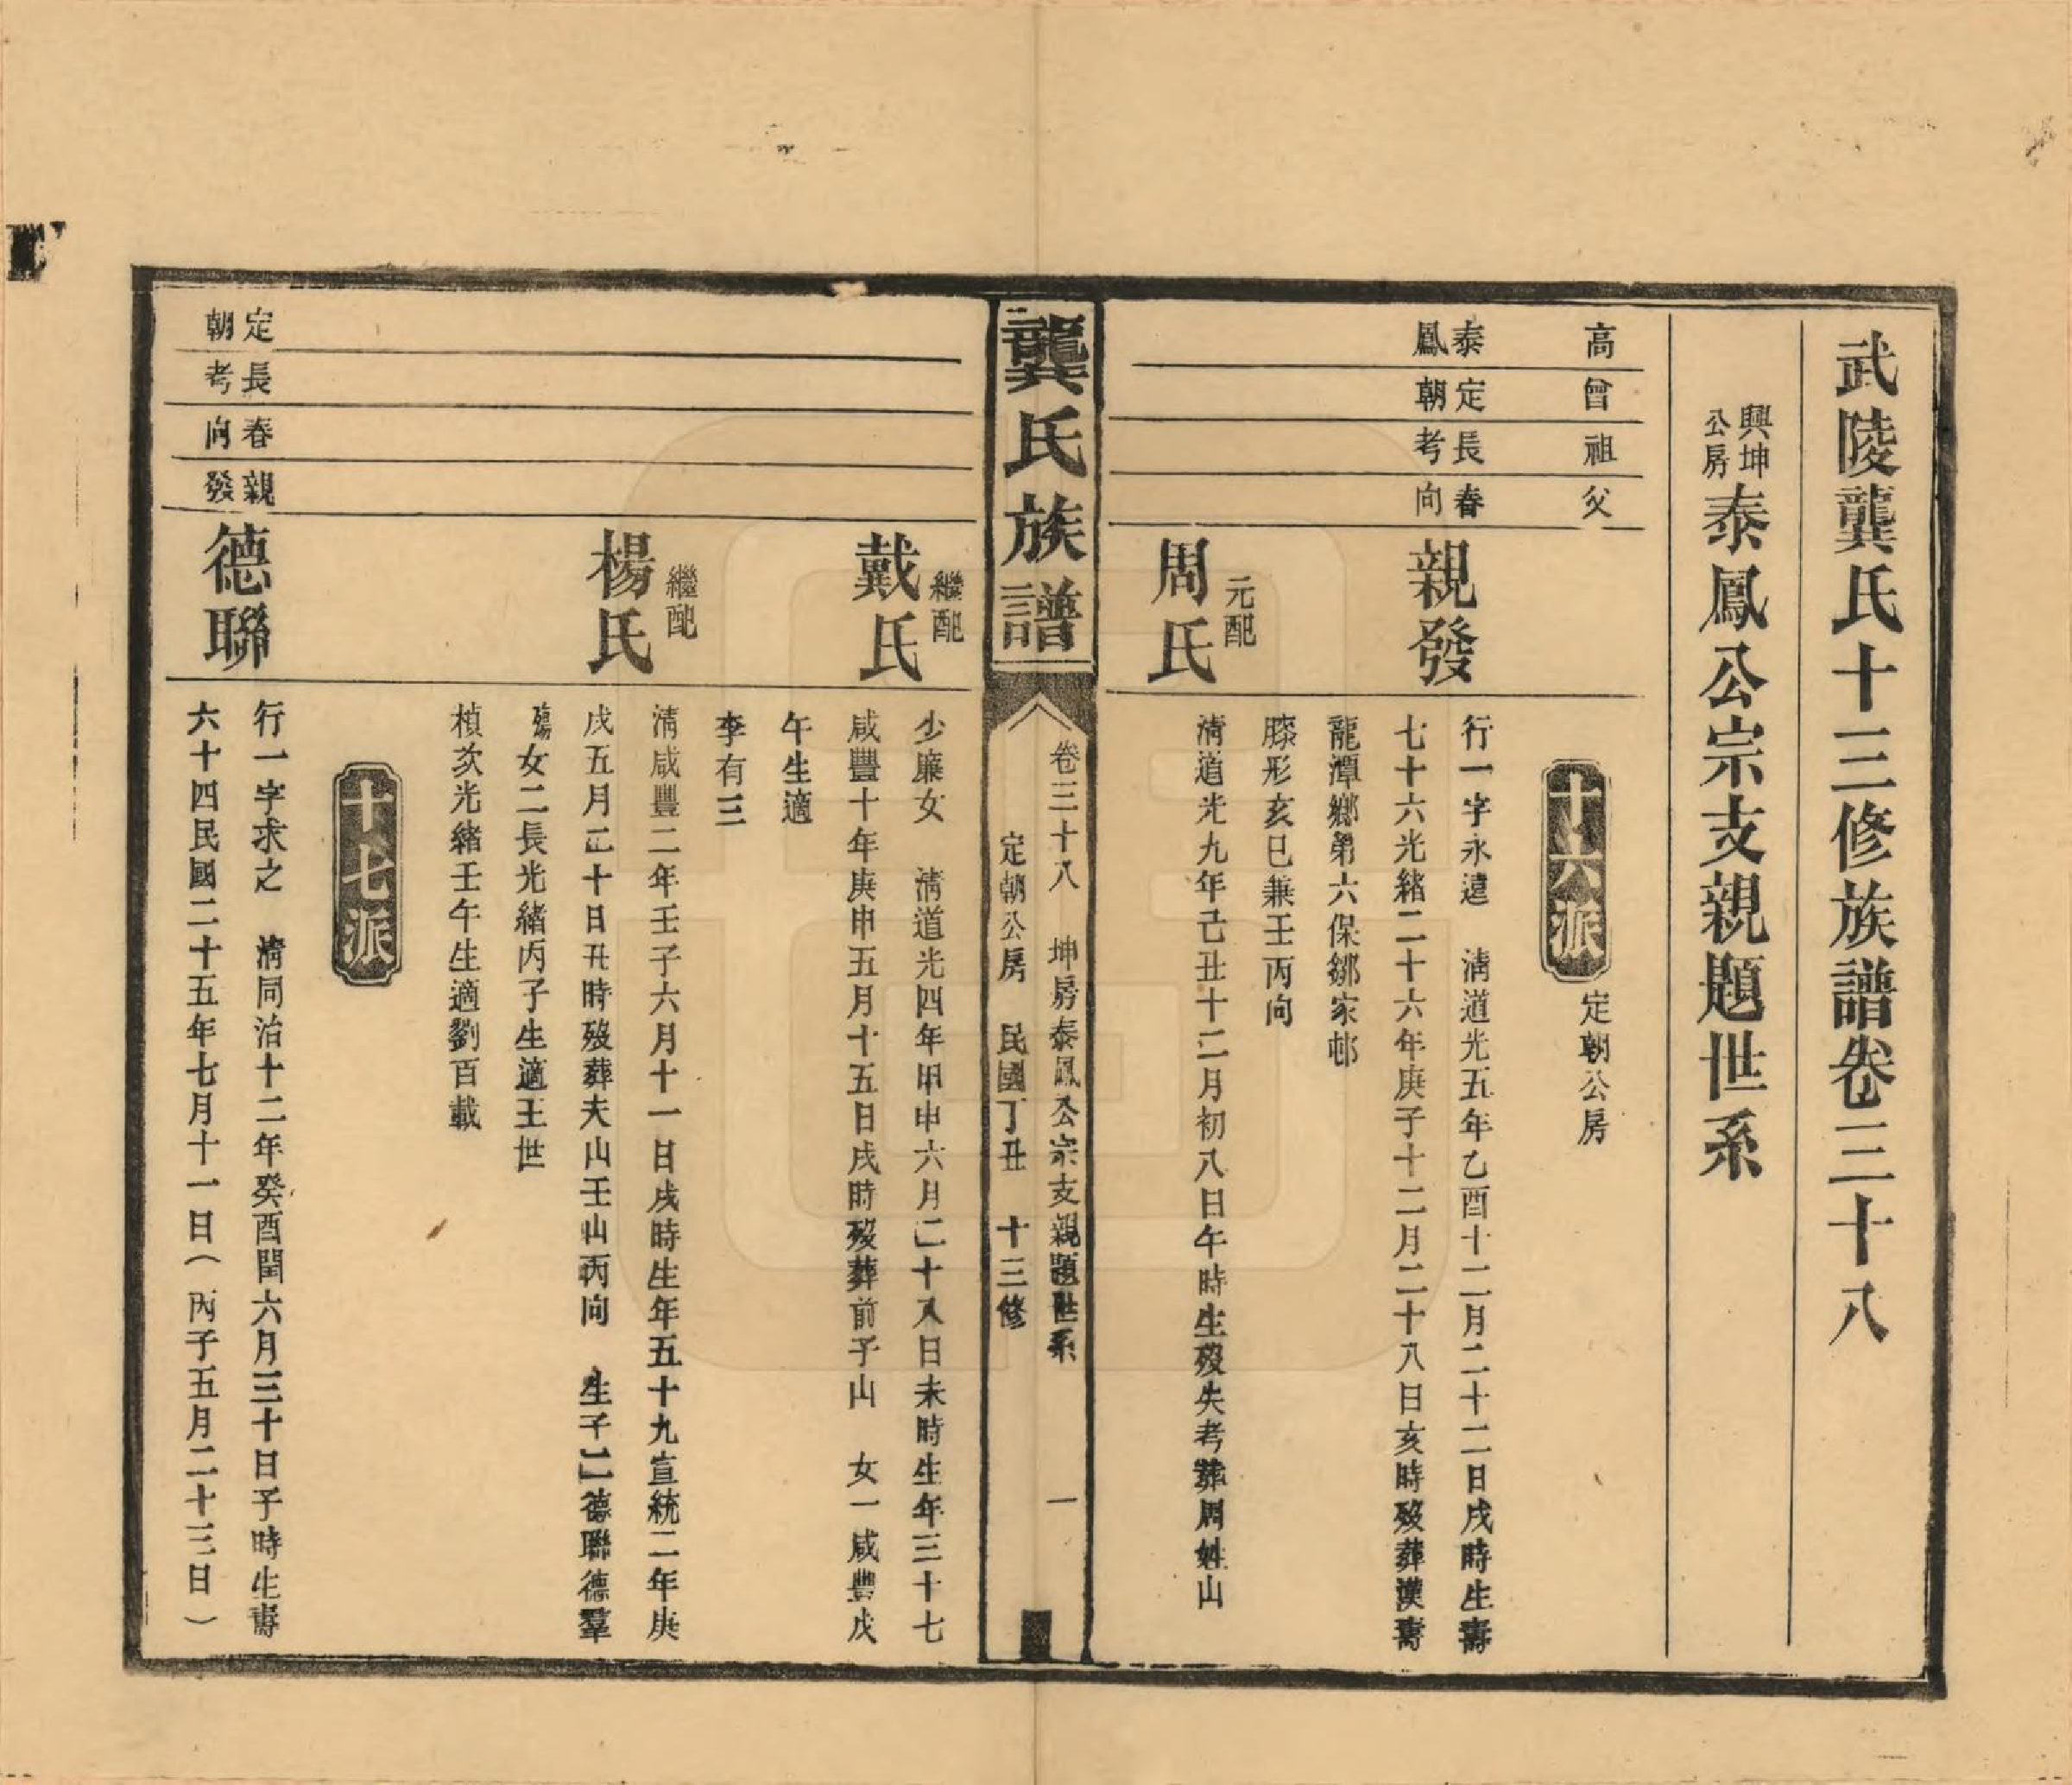 武陵龔氏十三修族譜卷三十八
興坤公房泰鳳公宗支親題世系
高曾祖父
十六派 定朝公房
泰鳳 定朝 長考 春向
親發
行一字永遠 清道光五年乙酉十二月二十二日戌時生壽
七十六光緒二十六年庚子十二月二十八日亥時歿葬漢壽
龍潭鄉第六保鄒家邨
膝形亥巳兼壬丙向
元配
周氏
清道光九年己丑十二月初八日午時生歿失考葬周姓山
龔氏族譜
卷三十八 坤房泰鳳公宗支親題世系 一
定朝公房 民國丁丑 十三修
繼配
戴氏
少廉女 清道光四年甲申六月二十八日未時生年三十七
咸豐十年庚申五月十五日戌時歿葬前子山 女一咸豐戊
午生適
李有三
繼配
楊氏
清咸豐二年壬子六月十一日戌時生年五十九宣統二年庚
戌五月二十日丑時歿葬夫山壬山丙向 生子二德聯德羣
殤女二長光緒丙子生適王世
楨次光緒壬午生適劉百載
十七派
定朝 長考 春向 親發
德聯
行一字求之 清同治十二年癸酉閏六月三十日子時生壽
六十四民國二十五年七月十一日（丙子五月二十三日）